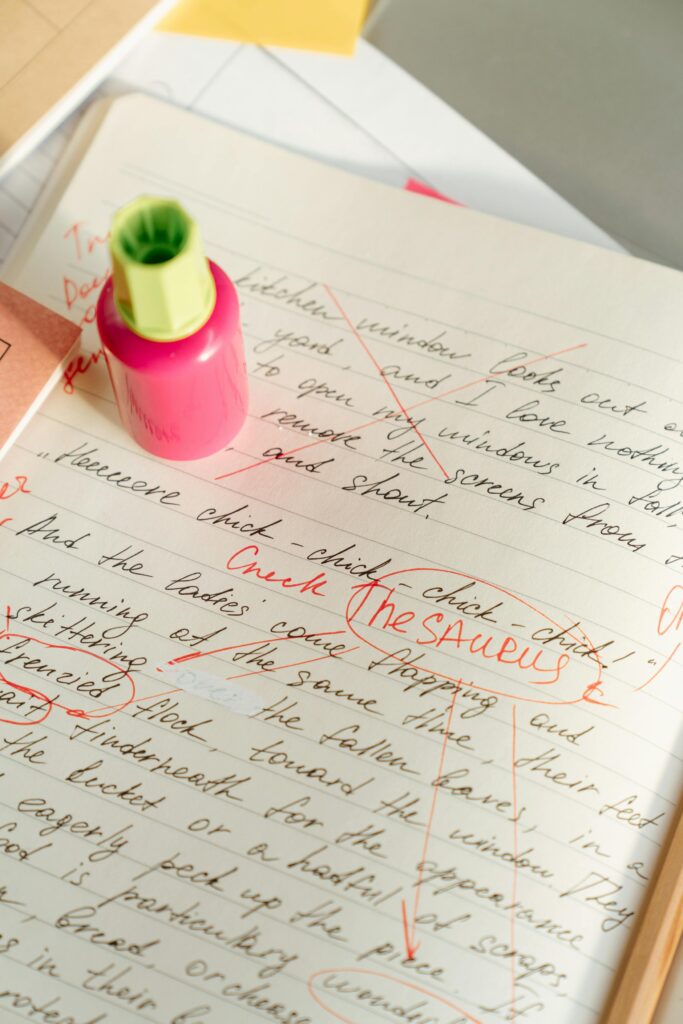 kitchen window looks out
yard, and I love nothing
to open my windows in fall,
remove the screens from
, and shout.
„Heeeeere chick-chick-chick-chick!"
Check TheSAURUS
And the ladies come flapping and
running at the same time, their feet
skittering over the fallen leaves, in a
frenzied flock, toward the window. They
wait underneath for the appearance
the bucket or a hadful of scraps,
eagerly peck up the piece. If
is particulary
bread, or cheese
in their